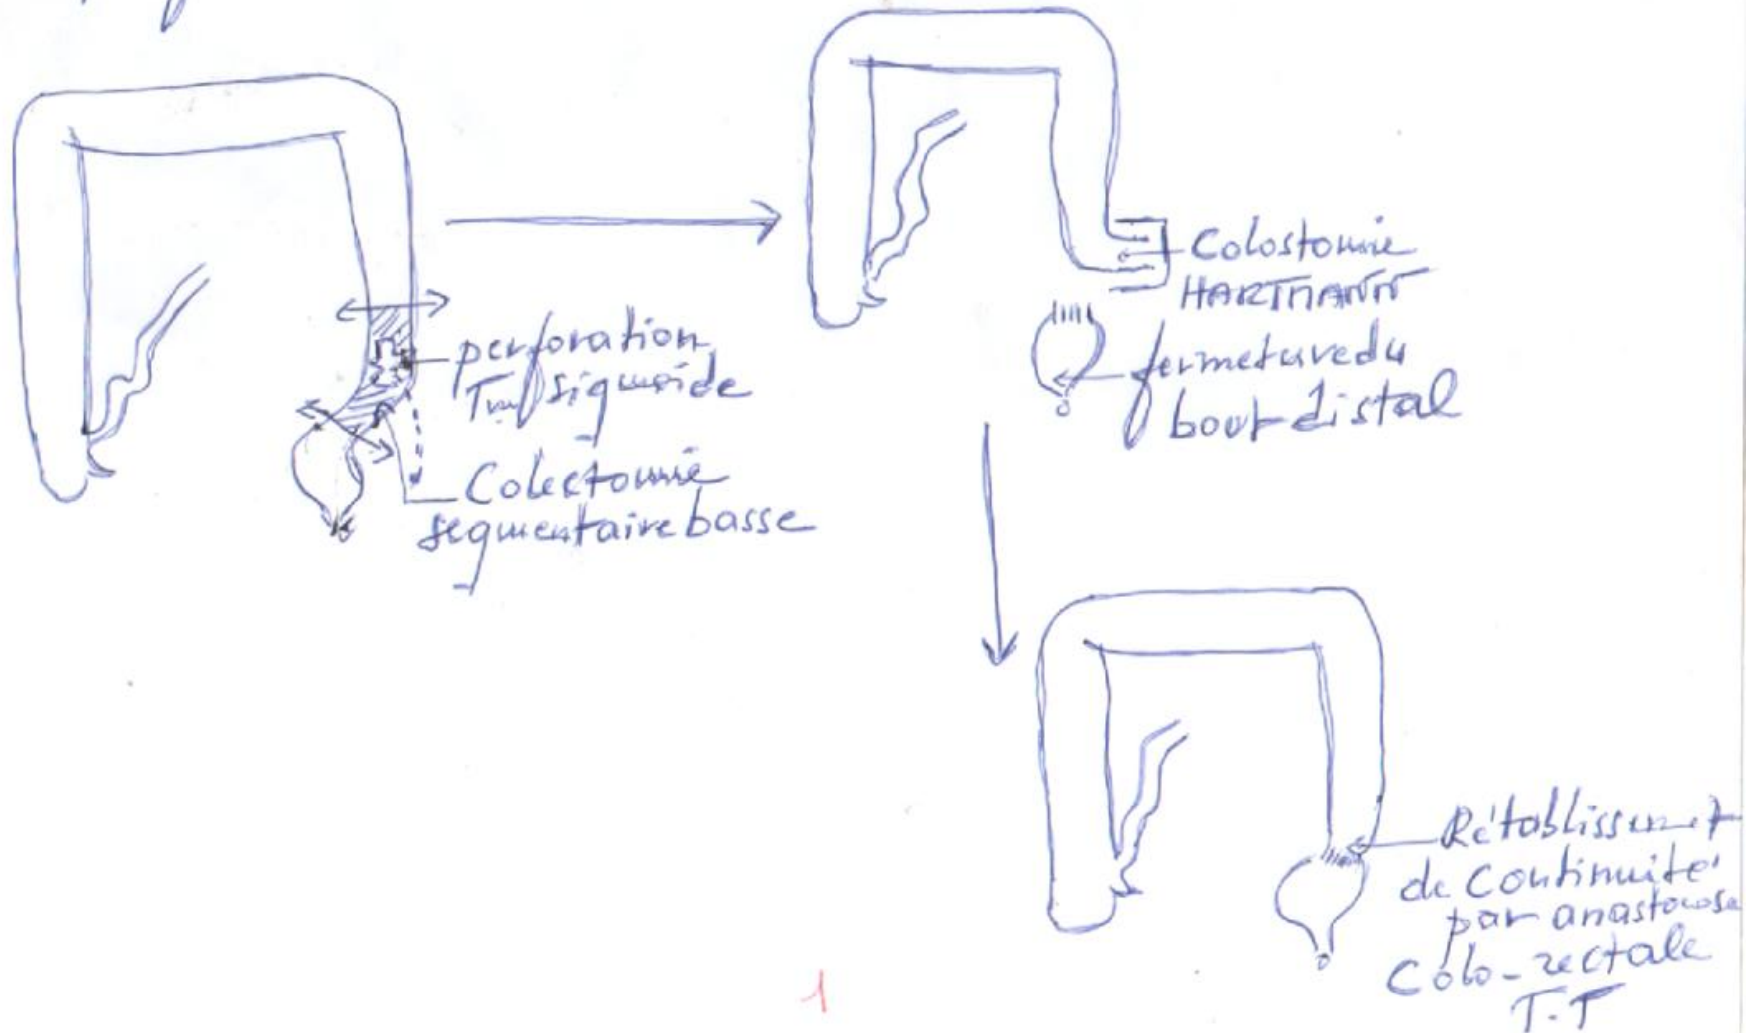 perforation
Tm sigmoïde
Colectomie
segmentaire basse
Colostomie
HARTMANN
fermeture du
bout distal
Rétablissement
de Continuité
par anastomose
Colo-rectale
T.T
1